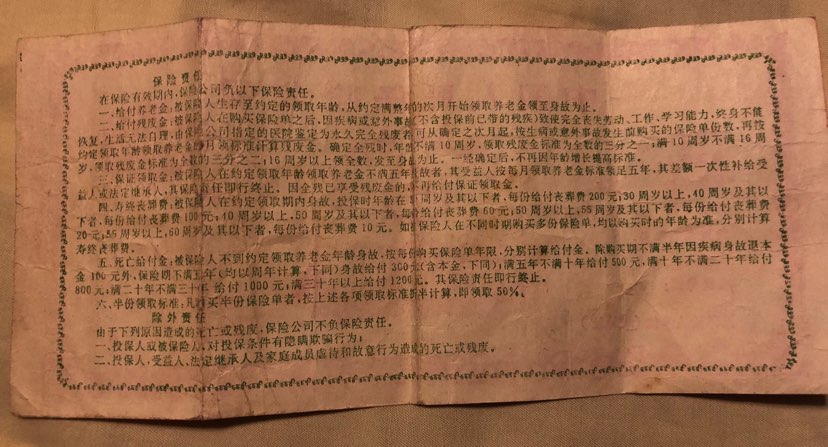 保险责任
在保险有效期内,保险公司负以下保险责任。
一、给付养老金:被保险人生存至约定的领取年龄,从约定满整年的次月开始领取养老金领至身故为止。
二、给付残废金:被保险人在购买保险单之后,因疾病或意外事故(不含投保前已带的残疾)致使完全丧失劳动、工作、学习能力,终身不能
恢复,生活无法自理,由保险公司指定的医院鉴定为永久完全残废者可从确定之次月起,按生病或意外事故发生前购买的保险单份数,再按
约定领取年龄领取养老金的月领标准计算残废金。确定全残时,年龄不满10周岁,领取残废金标准为全数的三分之一;满10周岁不满16周
岁,领取残废金标准为全数的三分之二;16周岁以上领全数,发至身故为止。一经确定后,不再因年龄增长提高标准。
三、保证领取金:被保险人在约定领取年龄领取养老金不满五年身故者,其受益人按每月领取养老金标准领足五年,其差额一次性补给受
益人或法定继承人,其保险责任即行终止。因全残已享受残废金的,不再给付保证领取金。
四、寿终丧葬费:被保险人在约定领取期内身故,投保时年龄在 周岁及其以下者,每份给付丧葬费200元;30周岁以上,40周岁及其以
下者,每份给付丧葬费100元;40周岁以上,50周岁及其以下者,每份给付丧葬费60元;50周岁以上,55周岁及其以下者,每份给付丧葬费
20元;55周岁以上,60周岁及其以下者,每份给付丧葬费10元。如被保险人在不同时期购买多份保险单,均以购买时的年龄为准,分别计算
寿终丧葬费。
五、死亡给付金:被保险人不到约定领取养老金年龄身故,按每份购买保险单年限,分别计算给付金。除购买期不满半年因疾病身故退本
金100元外,保险期不满五年(均以周年计算,下同)身故给付300元(含本金,下同);满五年不满十年给付500元,满十年不满二十年给付
800元;满二十年不满三十年给付1000元;满三十年以上给付1200元。其保险责任即行终止。
六、半份领取标准:凡购买半份保险单者,按上述各项领取标准折半计算,即领取50%。
除外责任
由于下列原因造成的死亡或残废,保险公司不负保险责任。
一、投保人或被保险人,对投保条件有隐瞒欺骗行为;
二、投保人,受益人,法定继承人及家庭成员虐待和故意行为造成的死亡或残废。